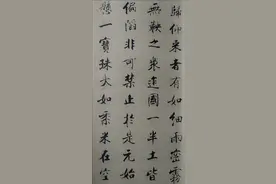 歸仰来者有如細雨密霧
無鞅之眾迮國一半土皆
偏陷非可禁止於是元始
懸一寶珠大如黍米在空